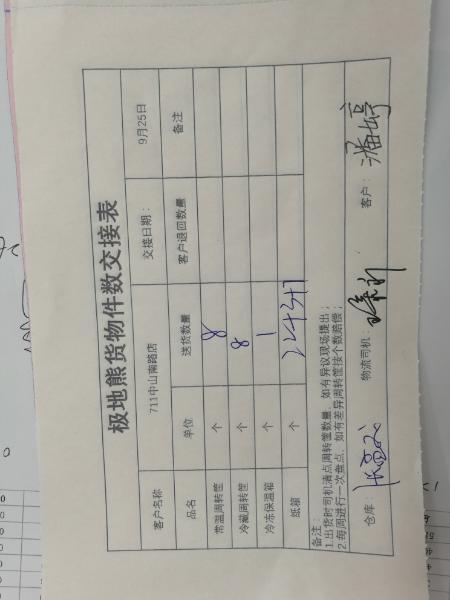 极地熊货物件数交接表
客户名称 711中山南路店 交接日期: 9月25日
品名 单位 送货数量 客户退回数量 备注
常温周转筐 个 8
冷藏周转筐 个 8
冷冻保温箱 个 1
纸箱 个
备注:
1.出货时司机清点周转筐数量、如有异议现场提出;
2.每周进行一次盘点、如有差异周转筐按个数赔偿;
仓库: 物流司机: 客户: 潘婷